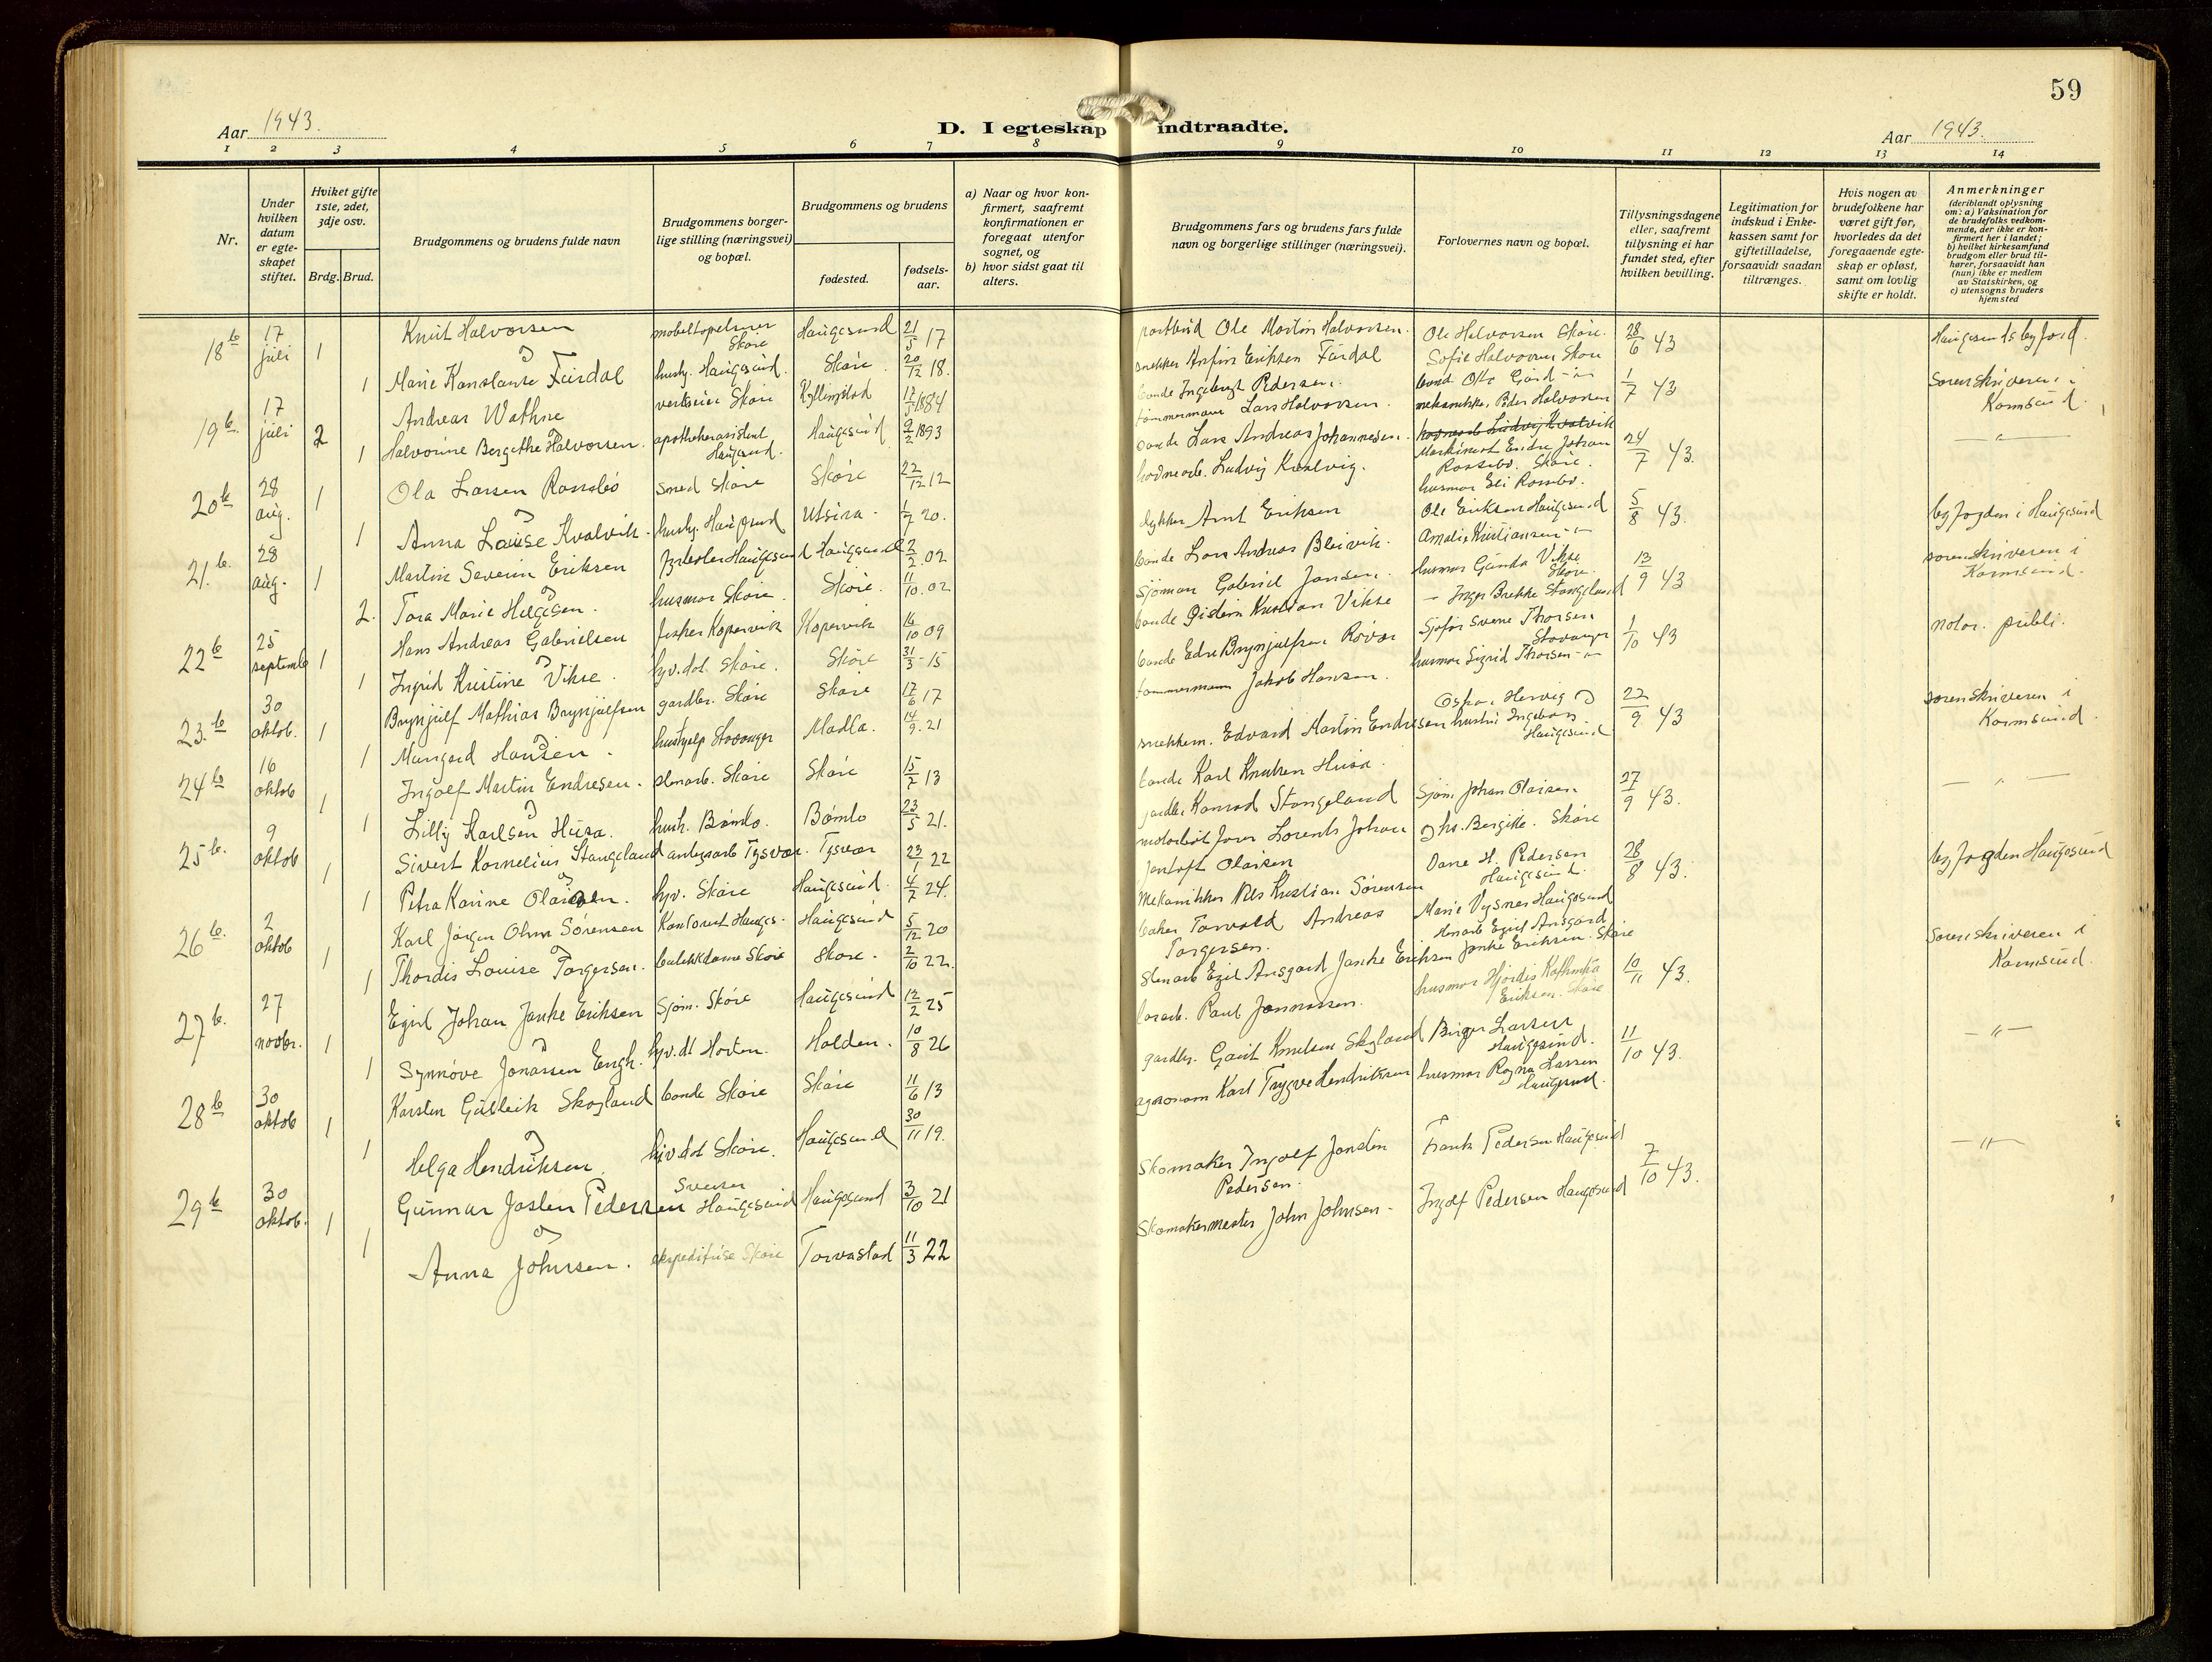 59
Aar 1943.
D. I egteskap indtraadte.
Aar 1943.
1 2 3 4 5 6 7 8 9 10 11 12 13 14
Nr.
Under hvilken datum er egte-skapet stiftet.
Hviket gifte 1ste, 2det, 3dje osv.
Brdg. Brud.
Brudgommens og brudens fulde navn
Brudgommens borger-lige stilling (næringsvei) og bopæl.
Brudgommens og brudens
fødested.
fødsels-aar.
a) Naar og hvor kon-firmert, saafremt konfirmationen er foregaat utenfor sognet, og
b) hvor sidst gaat til alters.
Brudgommens fars og brudens fars fulde navn og borgerlige stillinger (næringsvei).
Forlovernes navn og bopæl.
Tillysningsdagene eller, saafremt tillysning ei har fundet sted, efter hvilken bevilling.
Legitimation for indskud i Enke-kassen samt for giftetilladelse, forsaavidt saadan tiltrænges.
Hvis nogen av brudefolkene har været gift før, hvorledes da det foregaaende egte-skap er opløst, samt om lovlig skifte er holdt.
Anmerkninger (deriblandt oplysning om: a) Vaksination for de brudefolks vedkom-mende, der ikke er kon-firmert her i landet; b) hvilket kirkesamfund brudgom eller brud til-hører, forsaavidt han (hun) ikke er medlem av Statskirken, og c) utensogns bruders hjemsted
18 b 17 juli 1 Knut Halvorsen Skåre Haugesund 21/5 17 postbud Ole Martin Halvorsen. Ole Halvorsen Skåre. 28/6 43 Haugesunds byfogd.
1 Marie Konstanse Førdal hush. Haugesund. Skåre 20/12 18. snekker Anfin Eriksen Førdal Sofie Halvorsen Skåre
19 b. 17 juli 2 Andreas Wathne Skåre 1884 bonde Ingebregt Pedersen. 1/7 43 Sorenskriveren i Karmsund.
1 Halvorine Bergethe Halvorsen. apothekerasistent Haugesund. Haugesund 9/2 1893 tømmermann Lars Halvorsen. Peder Halvorsen
20 b 28 aug. 1 Ola Larsen Rossebø smed Skåre Skåre 22/12 12 bonde Lars Andreas Johannesen. Maskinist Endre Johan Rossebø. Skåre. 24/7 43. — " —
1 Anna Louise Kvalvik. hush. Haugesund Utsira. 1/7 20. Ludvig Kvalvig. husmor Eli Rossebø.
21. b. 28 aug. 1 Martin Severin Eriksen Haugesund Haugesund 2/2 02 dykker Arnt Eriksen Ole Eriksen Haugesund 5/8 43. byfogden i Haugesund
2. Tora Marie Helgesen. husmor Skåre. Skåre. 11/10. 02 bonde Lars Andreas Bleivik. Amalie Kristiansen
22 b 25 septemb 1 Hans Andreas Gabrielsen fisker Kopervik Kopervik 16/10 09 Sjømann Gabriel Jansen. husmor Gunda Vikse Skåre. 13/9 43 sorenskriveren i Karmsund.
1 Ingrid Kristine Vikse. hjv. dat. Skåre. Skåre 31/3 15 bonde Kristian Vikse Inger Brekke Stangeland
23. b 30 oktob. 1 Brynjulf Mathias Brynjulfsen gardbr. Skåre Skåre 17/6 17 bonde Edre Brynjulfsen Røvær Sjåfør Sverre Thorsen Stavanger 1/10 43 notar. publ.
1 Margard Hansen. hushjelp Stavanger Madla. 14/9. 21 tømmermann Jakob Hansen. husmor Sigrid Thorsen
24 b 16 oktob 1 Ingolf Martin Endresen. Skåre Skåre 15/2 13 snekkerm. Edvard Martin Endresen Oskar Hervig og hustru Ingeborg Haugesund 22/9 43 sorenskriveren i Karmsund.
1 Lilly Karlsen Husa. hush. Bømlo. Bømlo 23/5 21. bonde Karl Knutsen Husa.
25 b. 9 oktob 1 Sivert Kornelius Stangeland anlegsarb Tysvær. Tysvær 23/1 22 gardbr. Konrad Stangeland Sjøm. Johan Olaisen 27/9 43. — " —
1 Petra Karine Olaisen. hjv. Skåre Haugesund. 4/7 24. Lorents Johan Jentoft Olaisen og hs. Bergitte. Skåre
26 b. 2 oktob 1 Karl Jørgen Olsen Sørensen Kontorist Hauges. Haugesund 5/12 20 Mekanikker Nils Kristian Sørensen H. Pedersen Haugesund. 28/8 43. byfogden Haugesund
1 Thordis Louise Torgersen. butikkdame Skåre Skåre. 2/10 22. baker Torvald Andreas Torgersen. Marie Vysnes Haugesund
27 b. 27 novbr. 1 Egil Johan Janke Eriksen Sjøm. Skåre Haugesund 12/2 25 Egil Ansgard Janke Eriksen Egil Ansgard Janke Eriksen. Skåre 10/11 43. Sorenskriveren i Karmsund.
1 Synnøve Jonassen Engh. hjv. dt Horten. Halden. 10/8 26 Paul Jonnassen. husmor Hjørdis Eriksen. Skåre
28 b 30 oktob 1 Karsten Gulleik Skogland bonde Skåre Skåre 11/6 13 gardbr. Gaut Knutsen Skogland Birger Larsen Haugesund. 11/10 43. — " —
1 Helga Hendriksen. hjv. dat Skåre. Haugesund 30/11 19. agronom Karl Trygve Hendriksen husmor Ragna Larsen Haugesund.
29 b 30 oktob. 1 Gunnar Josten Pedersen Sveiser Haugesund Haugesund 3/10 21 Skomaker Ingolf Jonsten Pedersen. Frank Pedersen Haugesund 7/10 43. — " —
1 og Anna Johnsen. ekspeditrise Skåre Torvastad 11/3 22 Skomakermester John Johnsen - Ingolf Pedersen Haugesund